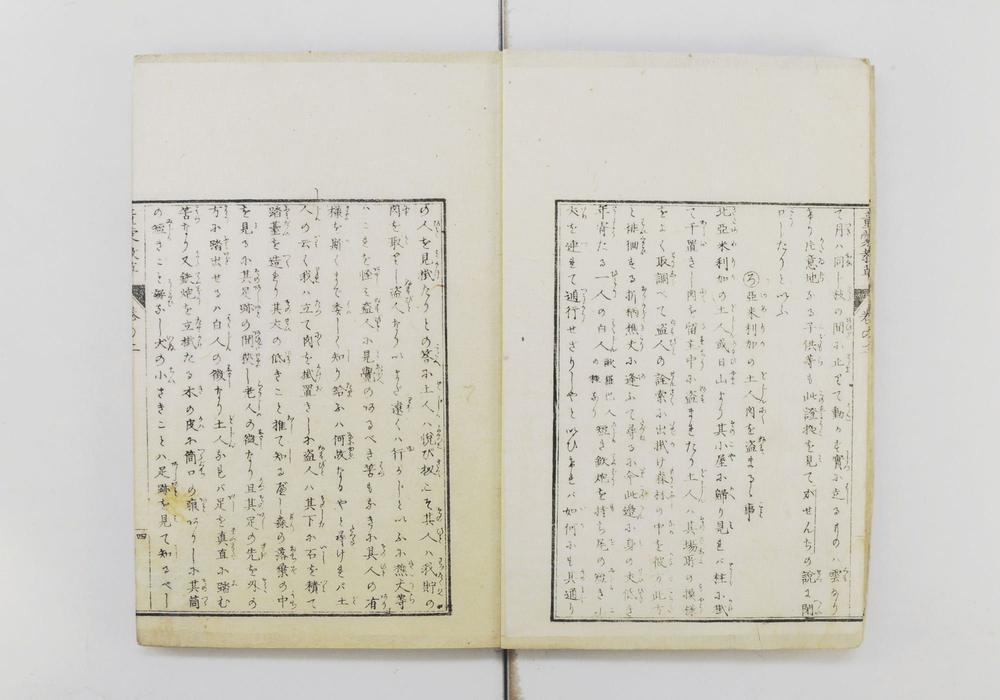 て月ハ同じ秋の間に止て動かず実に立るものハ雲なり
さり意地なる子供等も此證拠を見てがせんぢの説に閉
口したりと云ふ
(ろ)亞米利加の土人肉を盗まるゝ事
北亞米利加の土人或日山より其小屋に歸り見れバ柱に掛
て干置きし肉を留主中に盗まれたり土人ハ其場所の模様
をよく取調べて盗人の詮索に出掛け森林の中を彼方此方
と徘徊する折柄樵夫に逢ふて尋るに今此邊に身の丈低き
年寄たる一人の白人歐羅巴人の種あり短き鉄炮を持ち尾の短き小
犬を連れて通行せざりしやといひければ如何にも其通り
の人を見掛たりとの答に土人ハ悦び扨こそ其人ハ我貯の
肉を取りし盗人なりいまだ遠くハ行かじといふに樵夫等
ハこれを怪み盗人に見覺のあるべき筈もなきに其人の有
様を斯くまで委しく知り給ふハ何故なるやと尋けれバ土
人の云く我ハ立て肉を掛置きしに盗人ハ其下に石を積て
踏臺を造れり其丈の低きこと推て知る可し森の落葉の中
を見るに其足跡の間狭し老人の徴なり且其足の先を外の
方に踏出せるハ白人の徴なり土人なれバ足を真直に踏む
筈なり又鉄炮を立掛たる木の皮に筒口の痕ありしに其筒
の短きこと無論し犬の小さきことハ足跡を見て知るべし
童蒙教草
巻の二
四